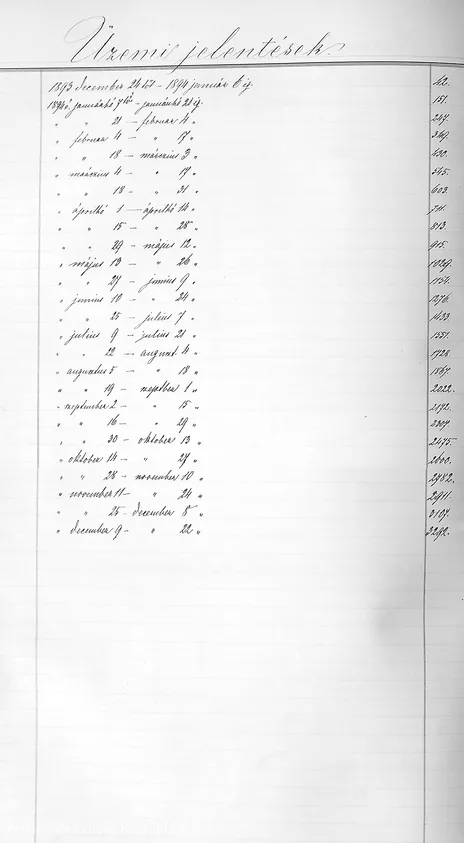 Üzemi jelentések.
1893 december 24 től – 1894 január 6 ig. 42.
1894 januárhó 7 től – januárhó 20 ig. 151.
" " 21 – februar 4 " 247.
" februar 4 – " 17 " 349.
" " 18 – március 3 " 430.
" március 4 – " 17 " 545.
" " 18 – " 31 " 603.
" áprilhó 1 – áprilhó 14 " 711.
" " 15 – " 28 " 813.
" " 29 – május 12 " 915.
" május 13 – " 26 " 1029.
" " 27 – junius 9 " 1154.
" junius 10 – " 24 " 1276.
" " 25 – julius 7 " 1433.
" julius 9 – julius 21 " 1551.
" " 22 – august 4 " 1728.
" augustus 5 – " 18 " 1867.
" " 19 – septber 1 " 2022.
" september 2 – " 15 " 2172.
" " 16 – " 29 " 2307.
" " 30 – oktober 13 " 2475.
" oktober 14 – " 27 " 2600.
" " 28 – november 10 " 2782.
" november 11 – " 24 " 2911.
" " 25 – december 8 " 3107.
" december 9 – " 22 " 3292.